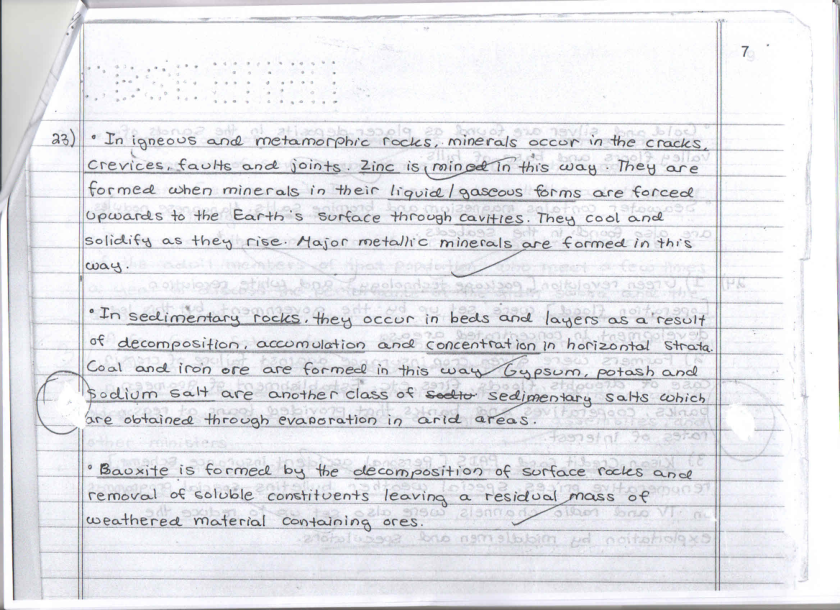 7
23) • In igneous and metamorphic rocks, minerals occur in the cracks,
crevices, faults and joints. Zinc is mined in this way. They are
formed when minerals in their liquid / gaseous forms are forced
upwards to the Earth's surface through cavities. They cool and
solidify as they rise. Major metallic minerals are formed in this
way.
• In sedimentary rocks, they occur in beds and layers as a result
of decomposition, accumulation and concentration in horizontal strata.
Coal and iron ore are formed in this way. Gypsum, potash and
sodium salt are another class of sedimentary salts which
are obtained through evaporation in arid areas.
• Bauxite is formed by the decomposition of surface rocks and
removal of soluble constituents leaving a residual mass of
weathered material containing ores.